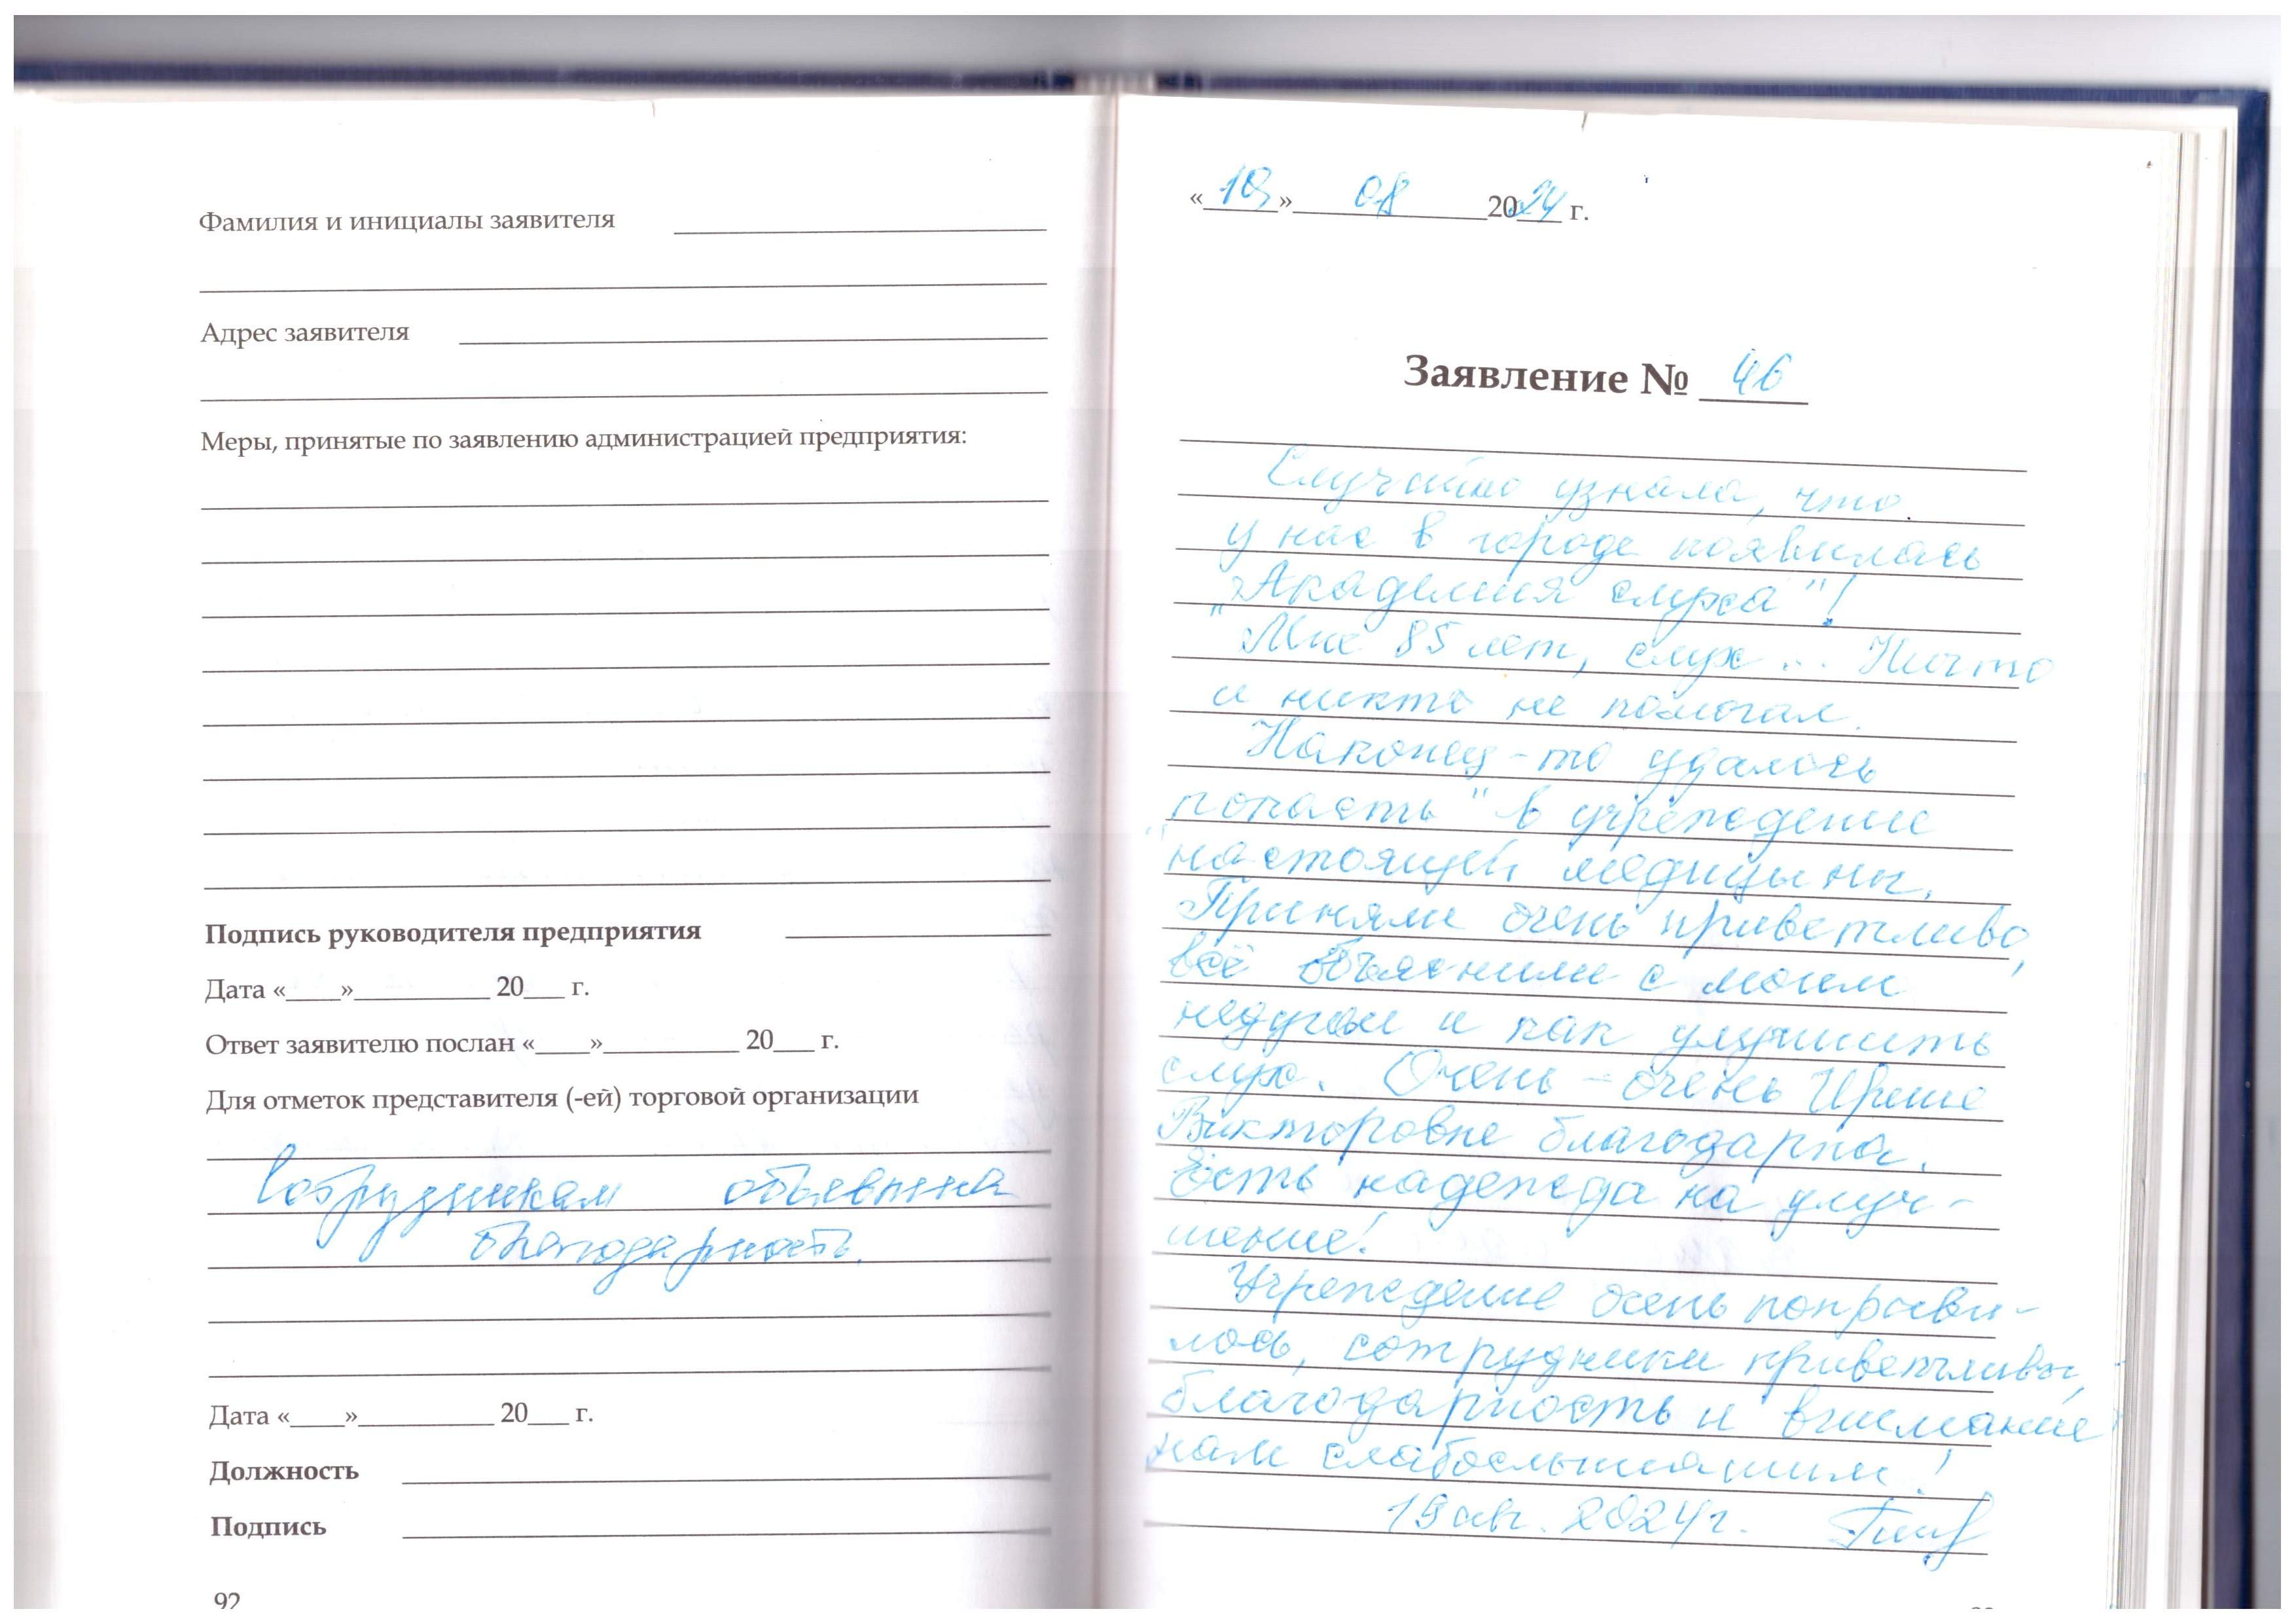 Фамилия и инициалы заявителя
Адрес заявителя
Меры, принятые по заявлению администрацией предприятия:
Подпись руководителя предприятия
Дата «____»__________ 20___ г.
Ответ заявителю послан «____»__________ 20___ г.
Для отметок представителя (-ей) торговой организации
Сотрудникам объявлена
благодарность.
Дата «____»__________ 20___ г.
Должность
Подпись
92
«19» 08 2024 г.
Заявление № 46
Случайно узнала, что
у нас в городе появилась
"Академия слуха"!
Мне 85 лет, слух... Ничто
и никто не помогал.
Наконец-то удалось
попасть "в учреждение
настоящей медицины.
Приняли очень приветливо,
всё объяснили с моим
недугом и как улучшить
слух. Очень-очень Ирине
Викторовне благодарна.
Есть надежда на улуч-
шение!
Учреждение очень понрави-
лось, сотрудники приветливы,
благодарность и внимание
нам слабослышащим!
19 авг. 2024г.